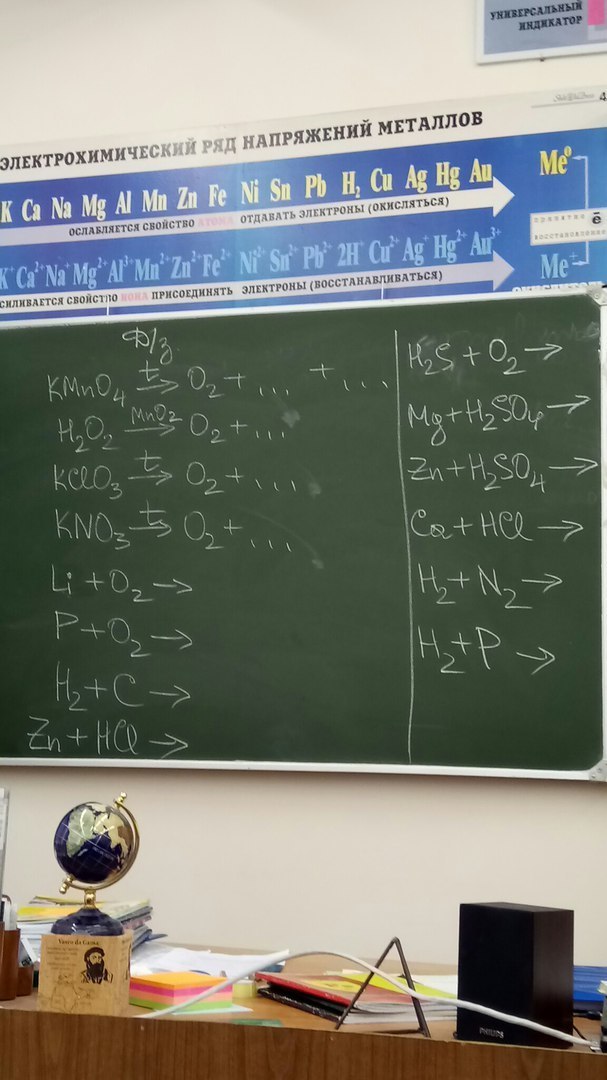 УНИВЕРСАЛЬНЫЙ
ИНДИКАТОР
4
ЭЛЕКТРОХИМИЧЕСКИЙ РЯД НАПРЯЖЕНИЙ МЕТАЛЛОВ
K Ca Na Mg Al Mn Zn Fe Ni Sn Pb H₂ Cu Ag Hg Au
Me⁰
ОСЛАБЛЯЕТСЯ СВОЙСТВО АТОМА ОТДАВАТЬ ЭЛЕКТРОНЫ (ОКИСЛЯТЬСЯ)
ē
K⁺ Ca²⁺ Na⁺ Mg²⁺ Al³⁺ Mn²⁺ Zn²⁺ Fe²⁺ Ni²⁺ Sn²⁺ Pb²⁺ 2H⁺ Cu²⁺ Ag⁺ Hg²⁺ Au³⁺
Me⁺
СИЛИВАЕТСЯ СВОЙСТВО ИОНА ПРИСОЕДИНЯТЬ ЭЛЕКТРОНЫ (ВОССТАНАВЛИВАТЬСЯ)
Д/з.
KMnO₄ t→ O₂ + ... + ...
H₂O₂ MnO₂→ O₂ + ...
KClO₃ t→ O₂ + ...
KNO₃ t→ O₂ + ...
Li + O₂ →
P + O₂ →
H₂ + C →
Zn + HCl →
H₂S + O₂ →
Mg + H₂SO₄ →
Zn + H₂SO₄ →
Ca + HCl →
H₂ + N₂ →
H₂ + P →
Vasco da Gama
PHILIPS